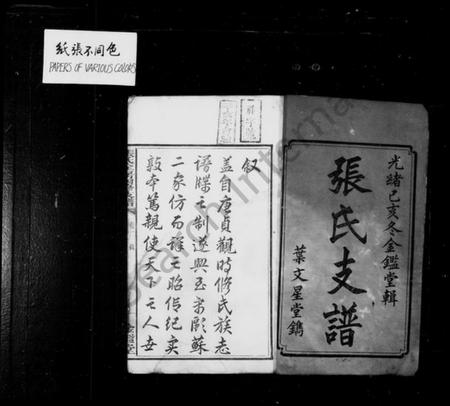 紙張不同色
PAPERS OF VARIOUS COLORS
光緒己亥冬金鑑堂輯
張氏支譜
葉文星堂鐫
叙
盖自唐貞觀時修民族志
譜牒之制遂興至宋歐蘇
二家仿而譜之昭傳紀实
敦本篤親使天下之人each